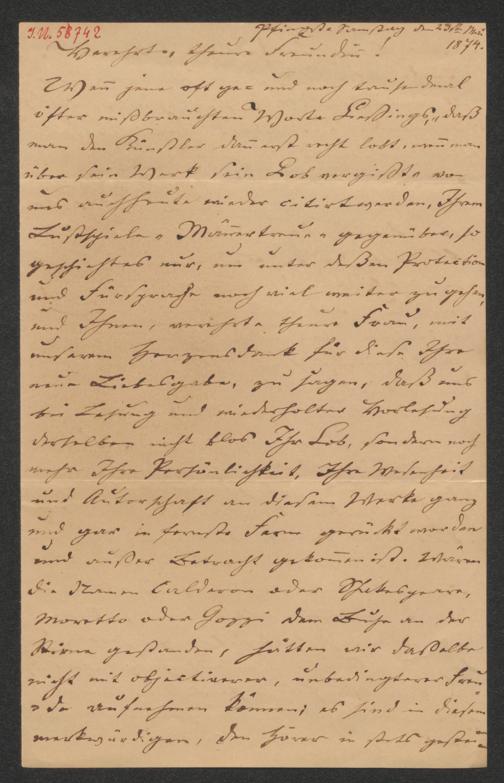 I.N. 58742
Pfingst-Samstag den 23ten Mai
1874.
Verehrte, theure Freundin!
Wenn jene oft ge= und noch tausendmal
öfter mißbrauchten Worte Lessings, „daß
man den Künstler dann erst recht lobt, wenn man
über sein Werk sein Lob vergißt" von
uns auch heute wieder citirt werden, Ihrem
Lustspiele „Männertreue" gegenüber, so
geschieht es nur, um unter deßen Protection
und Fürsprache noch viel weiter zu gehen,
und Ihnen, verehrte theure Frau, mit
unserem Herzensdank für diese Ihre
neue Liebesgabe, zu sagen, daß uns
bei Lesung und wiederholter Vorlesung
derselben nicht blos Ihr Lob, sondern noch
mehr Ihre Persönlichkeit, Ihre Wesenheit
und Autorschaft an diesem Werke ganz
und gar in fernste Ferne gerückt worden
und außer Betracht gekommen ist. Wären
die Namen Calderon oder Shakespeare,
Moretto oder Gozzi dem Buche an der
Stirne gestanden, hätten wir daßelbe
nicht mit objectiverer, unbedingterer Freu=
=de aufnehmen können; es sind in diesem
merkwürdigen, den Hörer in stets